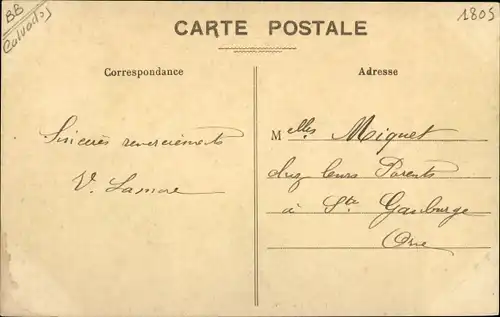 BB
Calvados
1805
CARTE POSTALE
Correspondance
Adresse
Sincères remerciements
V. Lamare
Melles Miquet
chez leurs Parents
à Ste Gauburge
Orne